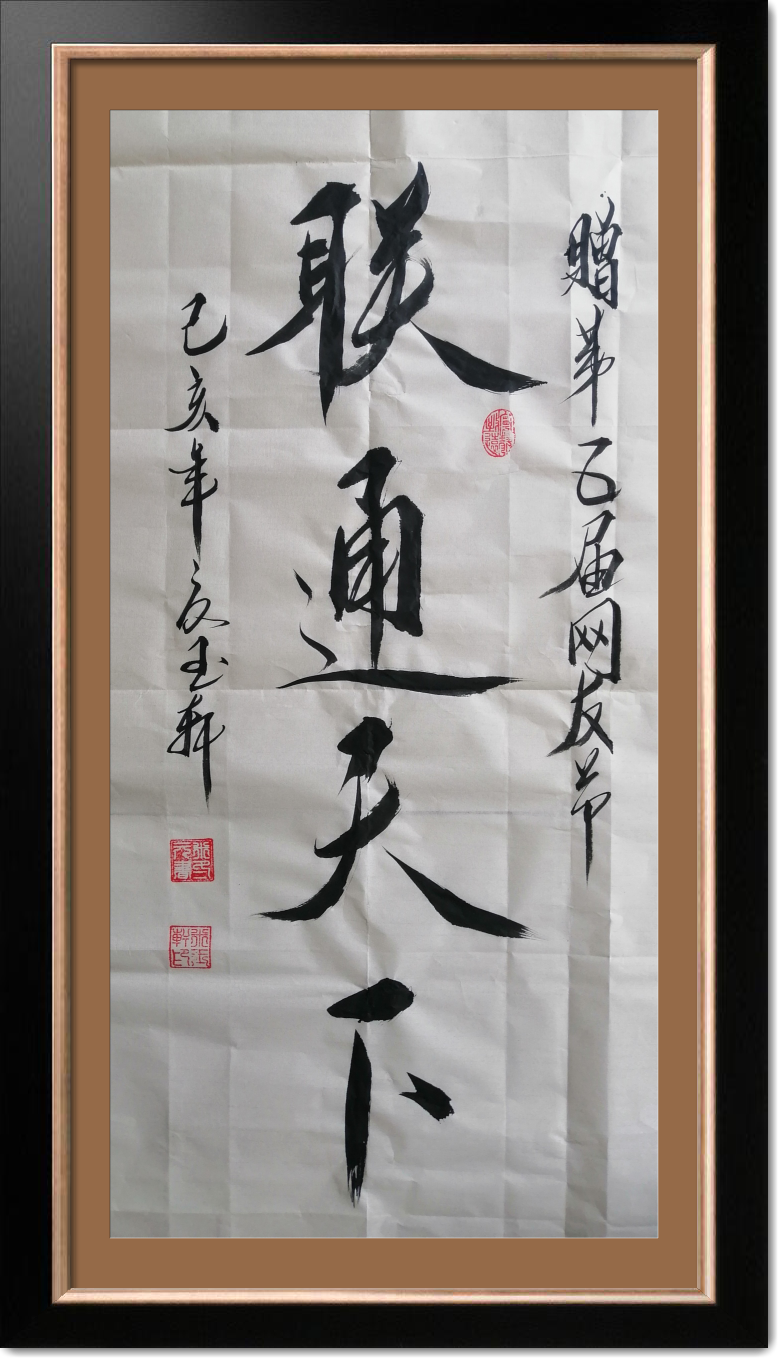 赠第五届网友节
联通天下
己亥年夏玉轩